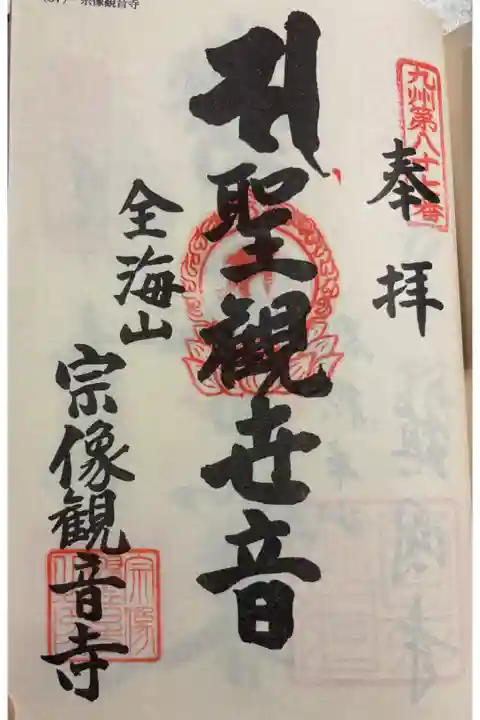 宗像観音寺
九州第八十七番
奉拝
聖観世音
全海山
宗像観音寺